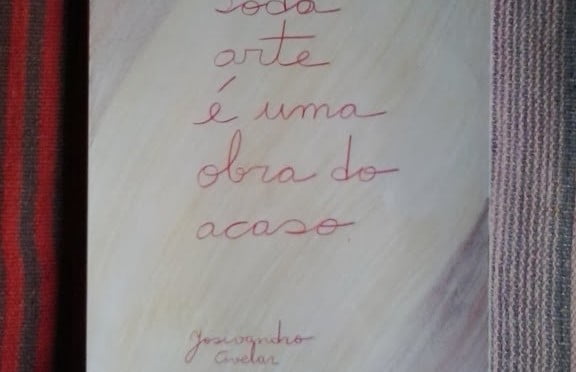 Toda
arte
é uma
obra do
acaso
Josivandro
Avelar